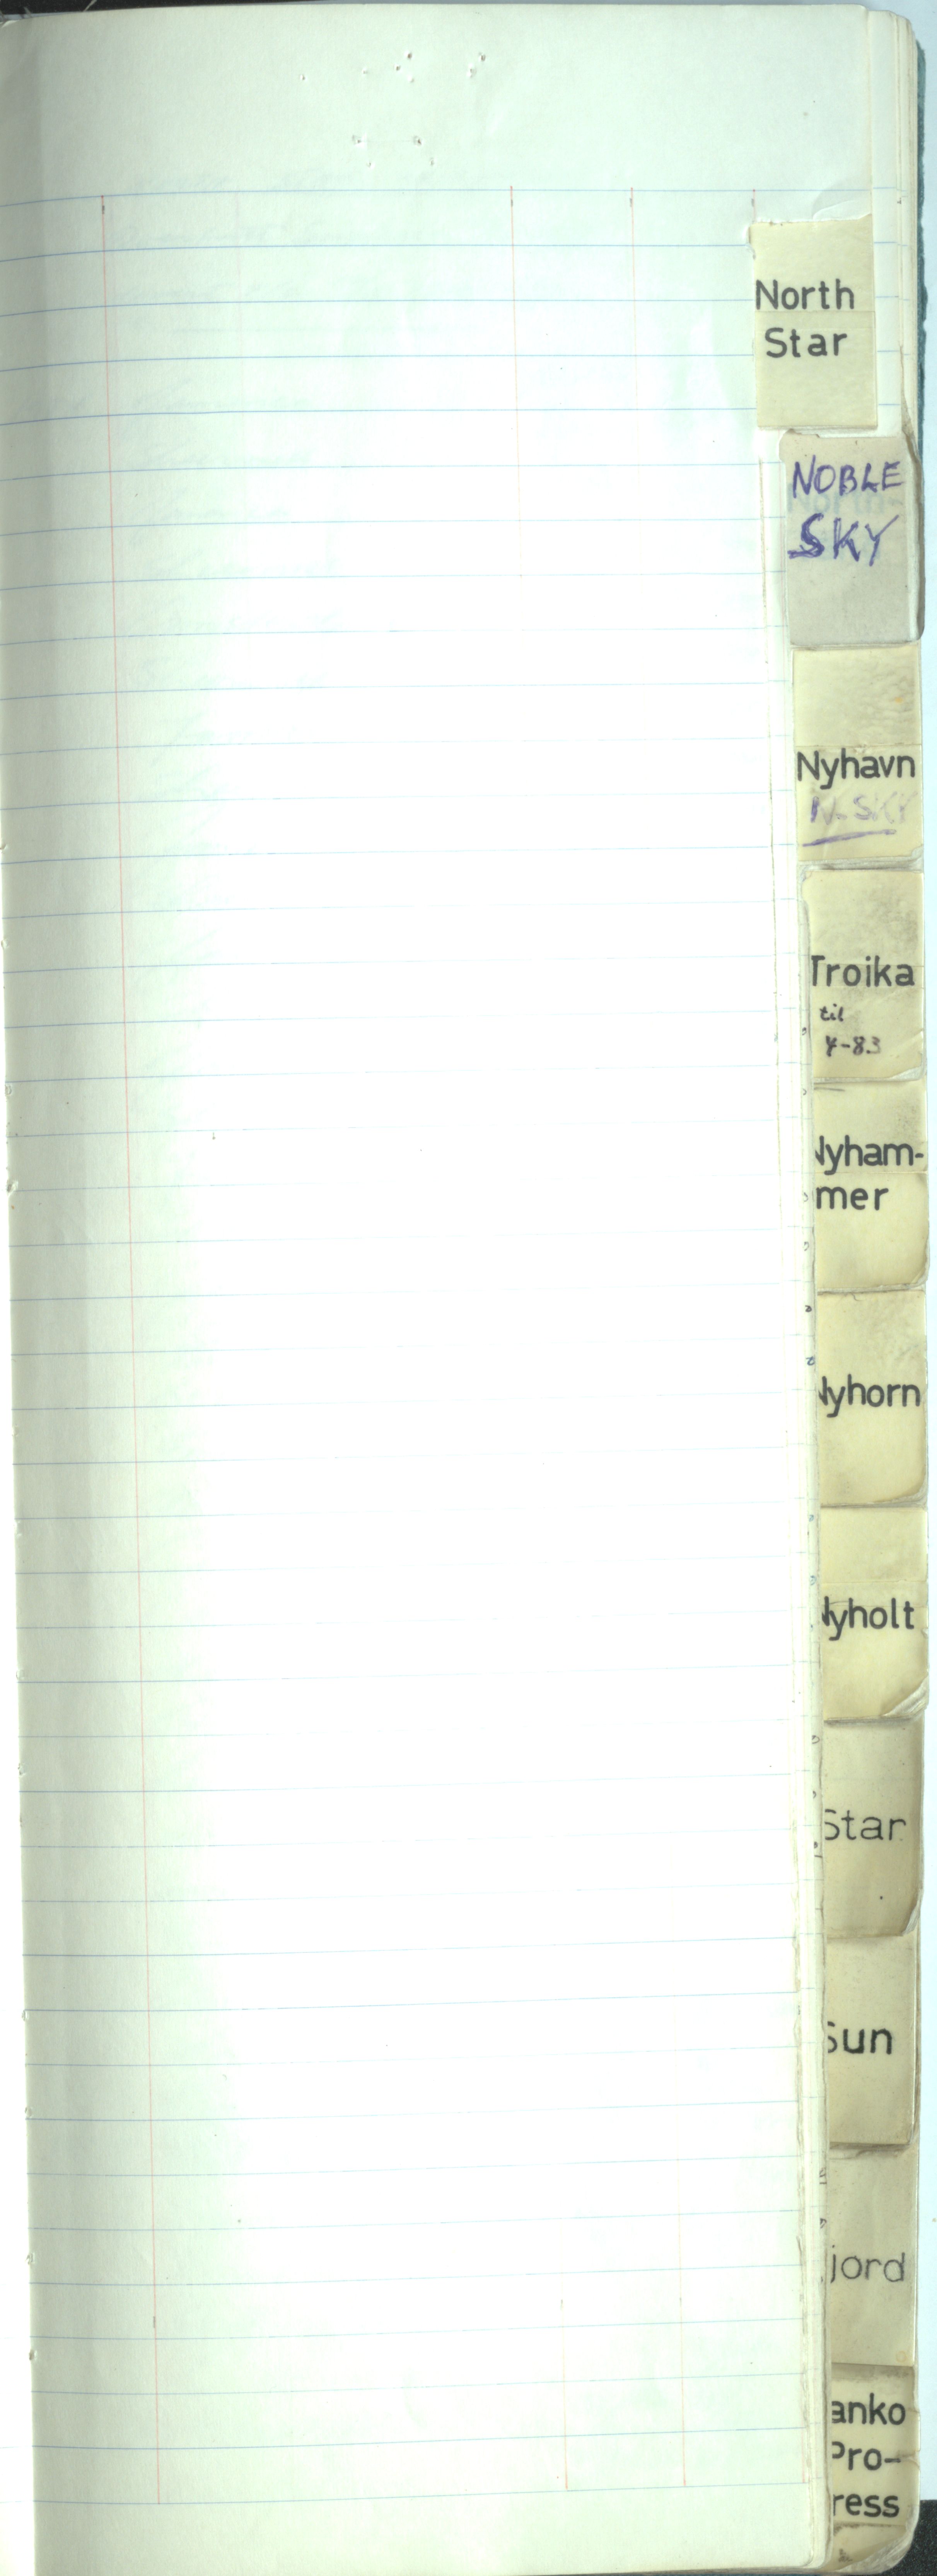 North
Star
NOBLE
SKY
Nyhavn
N. SKY
Troika
til
4-83
Nyham-
mer
Nyhorn
Nyholt
Star
Sun
jord
anko
Pro-
ress